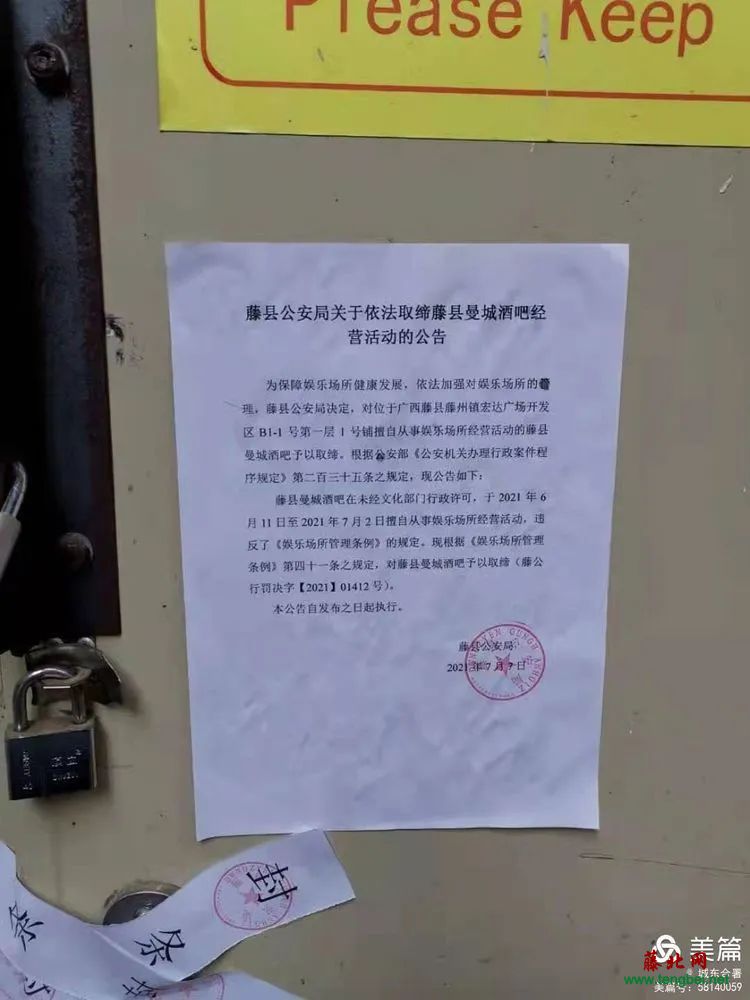 Please Keep
藤县公安局关于依法取缔藤县曼城酒吧经
营活动的公告
为保障娱乐场所健康发展，依法加强对娱乐场所的管
理，藤县公安局决定，对位于广西藤县藤州镇宏达广场开发
区 B1-1 号第一层 1 号铺擅自从事娱乐场所经营活动的藤县
曼城酒吧予以取缔。根据公安部《公安机关办理行政案件程
序规定》第二百三十五条之规定，现公告如下：
藤县曼城酒吧在未经文化部门行政许可，于 2021 年 6
月 11 日至 2021 年 7 月 2 日擅自从事娱乐场所经营活动，违
反了《娱乐场所管理条例》的规定。现根据《娱乐场所管理
条例》第四十一条之规定，对藤县曼城酒吧予以取缔（藤公
行罚决字【2021】01412 号）。
本公告自发布之日起执行。
藤县公安局
2021 年 7 月 7 日
封条
条
美篇
藤北网
城东仓署
www.tengbei.net
美篇号：58140059